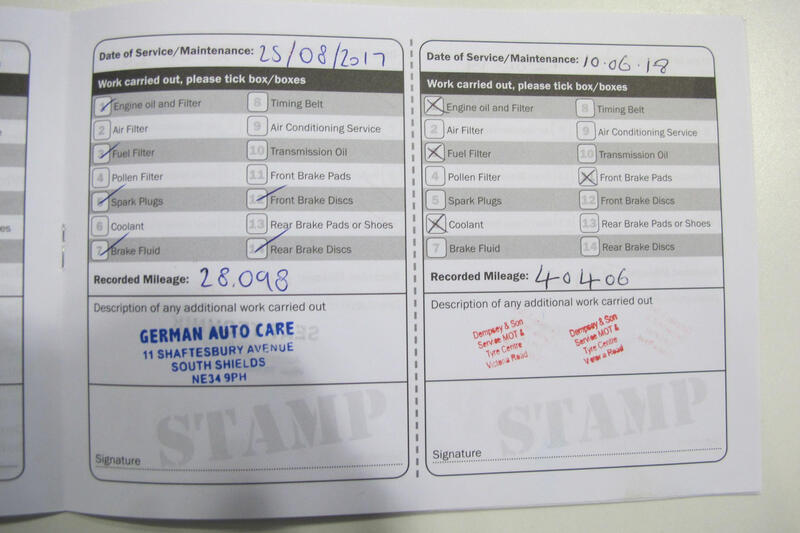 Date of Service/Maintenance: 25/08/2017
Work carried out, please tick box/boxes
1 Engine oil and Filter 8 Timing Belt
2 Air Filter 9 Air Conditioning Service
3 Fuel Filter 10 Transmission Oil
4 Pollen Filter 11 Front Brake Pads
5 Spark Plugs 12 Front Brake Discs
6 Coolant 13 Rear Brake Pads or Shoes
7 Brake Fluid 14 Rear Brake Discs
Recorded Mileage: 28.098
Description of any additional work carried out
GERMAN AUTO CARE
11 SHAFTESBURY AVENUE
SOUTH SHIELDS
NE34 9PH
STAMP
Signature
Date of Service/Maintenance: 10.06.18
Work carried out, please tick box/boxes
Engine oil and Filter 8 Timing Belt
2 Air Filter 9 Air Conditioning Service
Fuel Filter 10 Transmission Oil
4 Pollen Filter Front Brake Pads
5 Spark Plugs 12 Front Brake Discs
Coolant 13 Rear Brake Pads or Shoes
7 Brake Fluid 14 Rear Brake Discs
Recorded Mileage: 40406
Description of any additional work carried out
Dempsey & Son
Service MOT &
Tyre Centre
Victoria Road
Dempsey & Son
Service MOT &
Tyre Centre
Victoria Road
STAMP
Signature